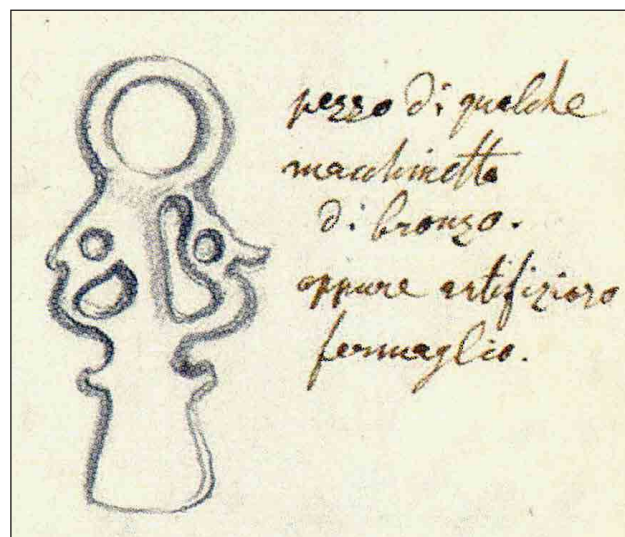 pezzo di qualche
macchinetta
di bronzo.
oppure artifizioso
fermaglio.